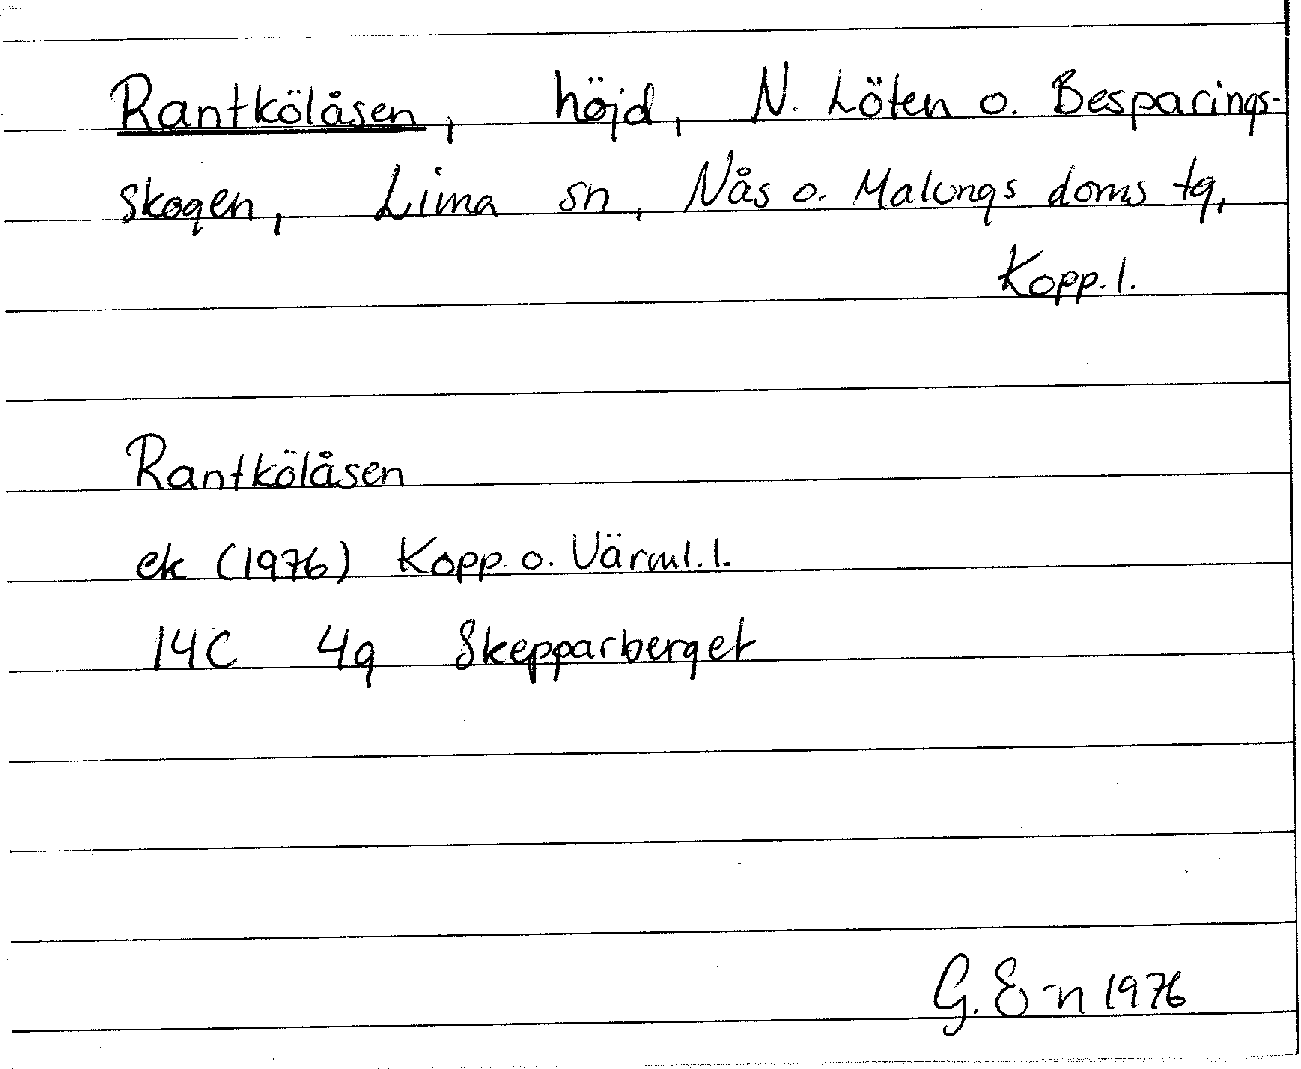 Rantkölåsen, höjd, N. Löten o. Besparings-
skogen, Lima sn, Nås o. Malungs doms tg,
Kopp. l.
Rantkölåsen
ek (1976) Kopp. o. Värml. l.
14C 4g Skepparberget
G. E-n 1976